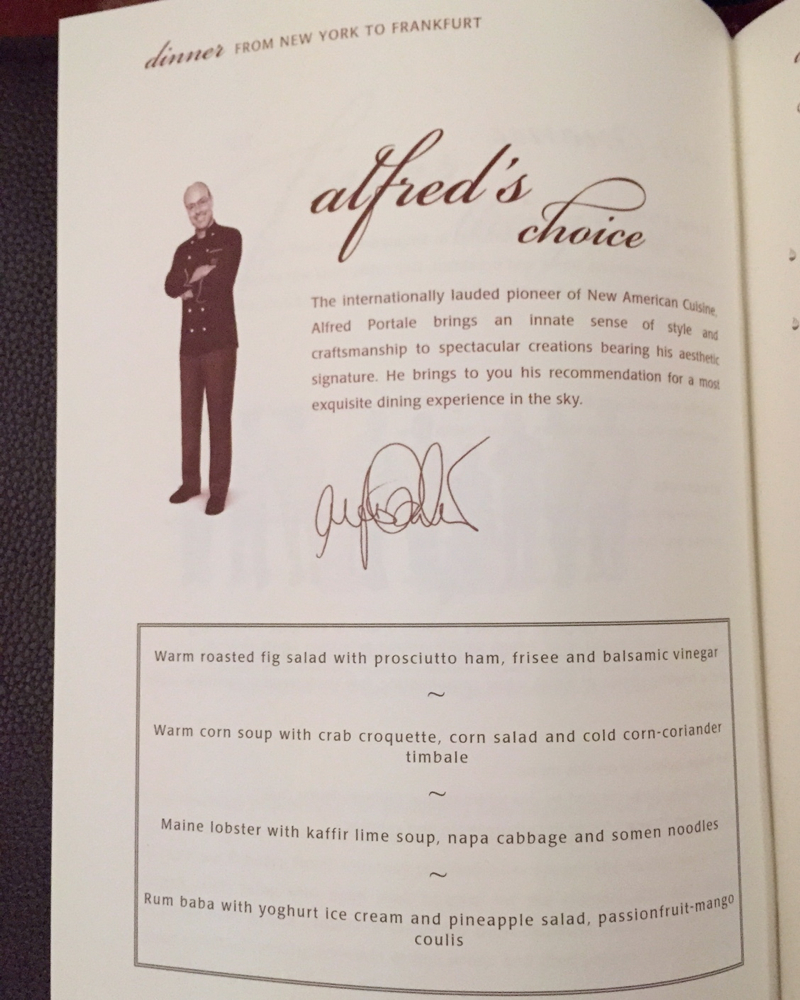 dinner FROM NEW YORK TO FRANKFURT
alfred's
choice
The internationally lauded pioneer of New American Cuisine,
Alfred Portale brings an innate sense of style and
craftsmanship to spectacular creations bearing his aesthetic
signature. He brings to you his recommendation for a most
exquisite dining experience in the sky.
Warm roasted fig salad with prosciutto ham, frisee and balsamic vinegar
~
Warm corn soup with crab croquette, corn salad and cold corn-coriander
timbale
~
Maine lobster with kaffir lime soup, napa cabbage and somen noodles
~
Rum baba with yoghurt ice cream and pineapple salad, passionfruit-mango
coulis